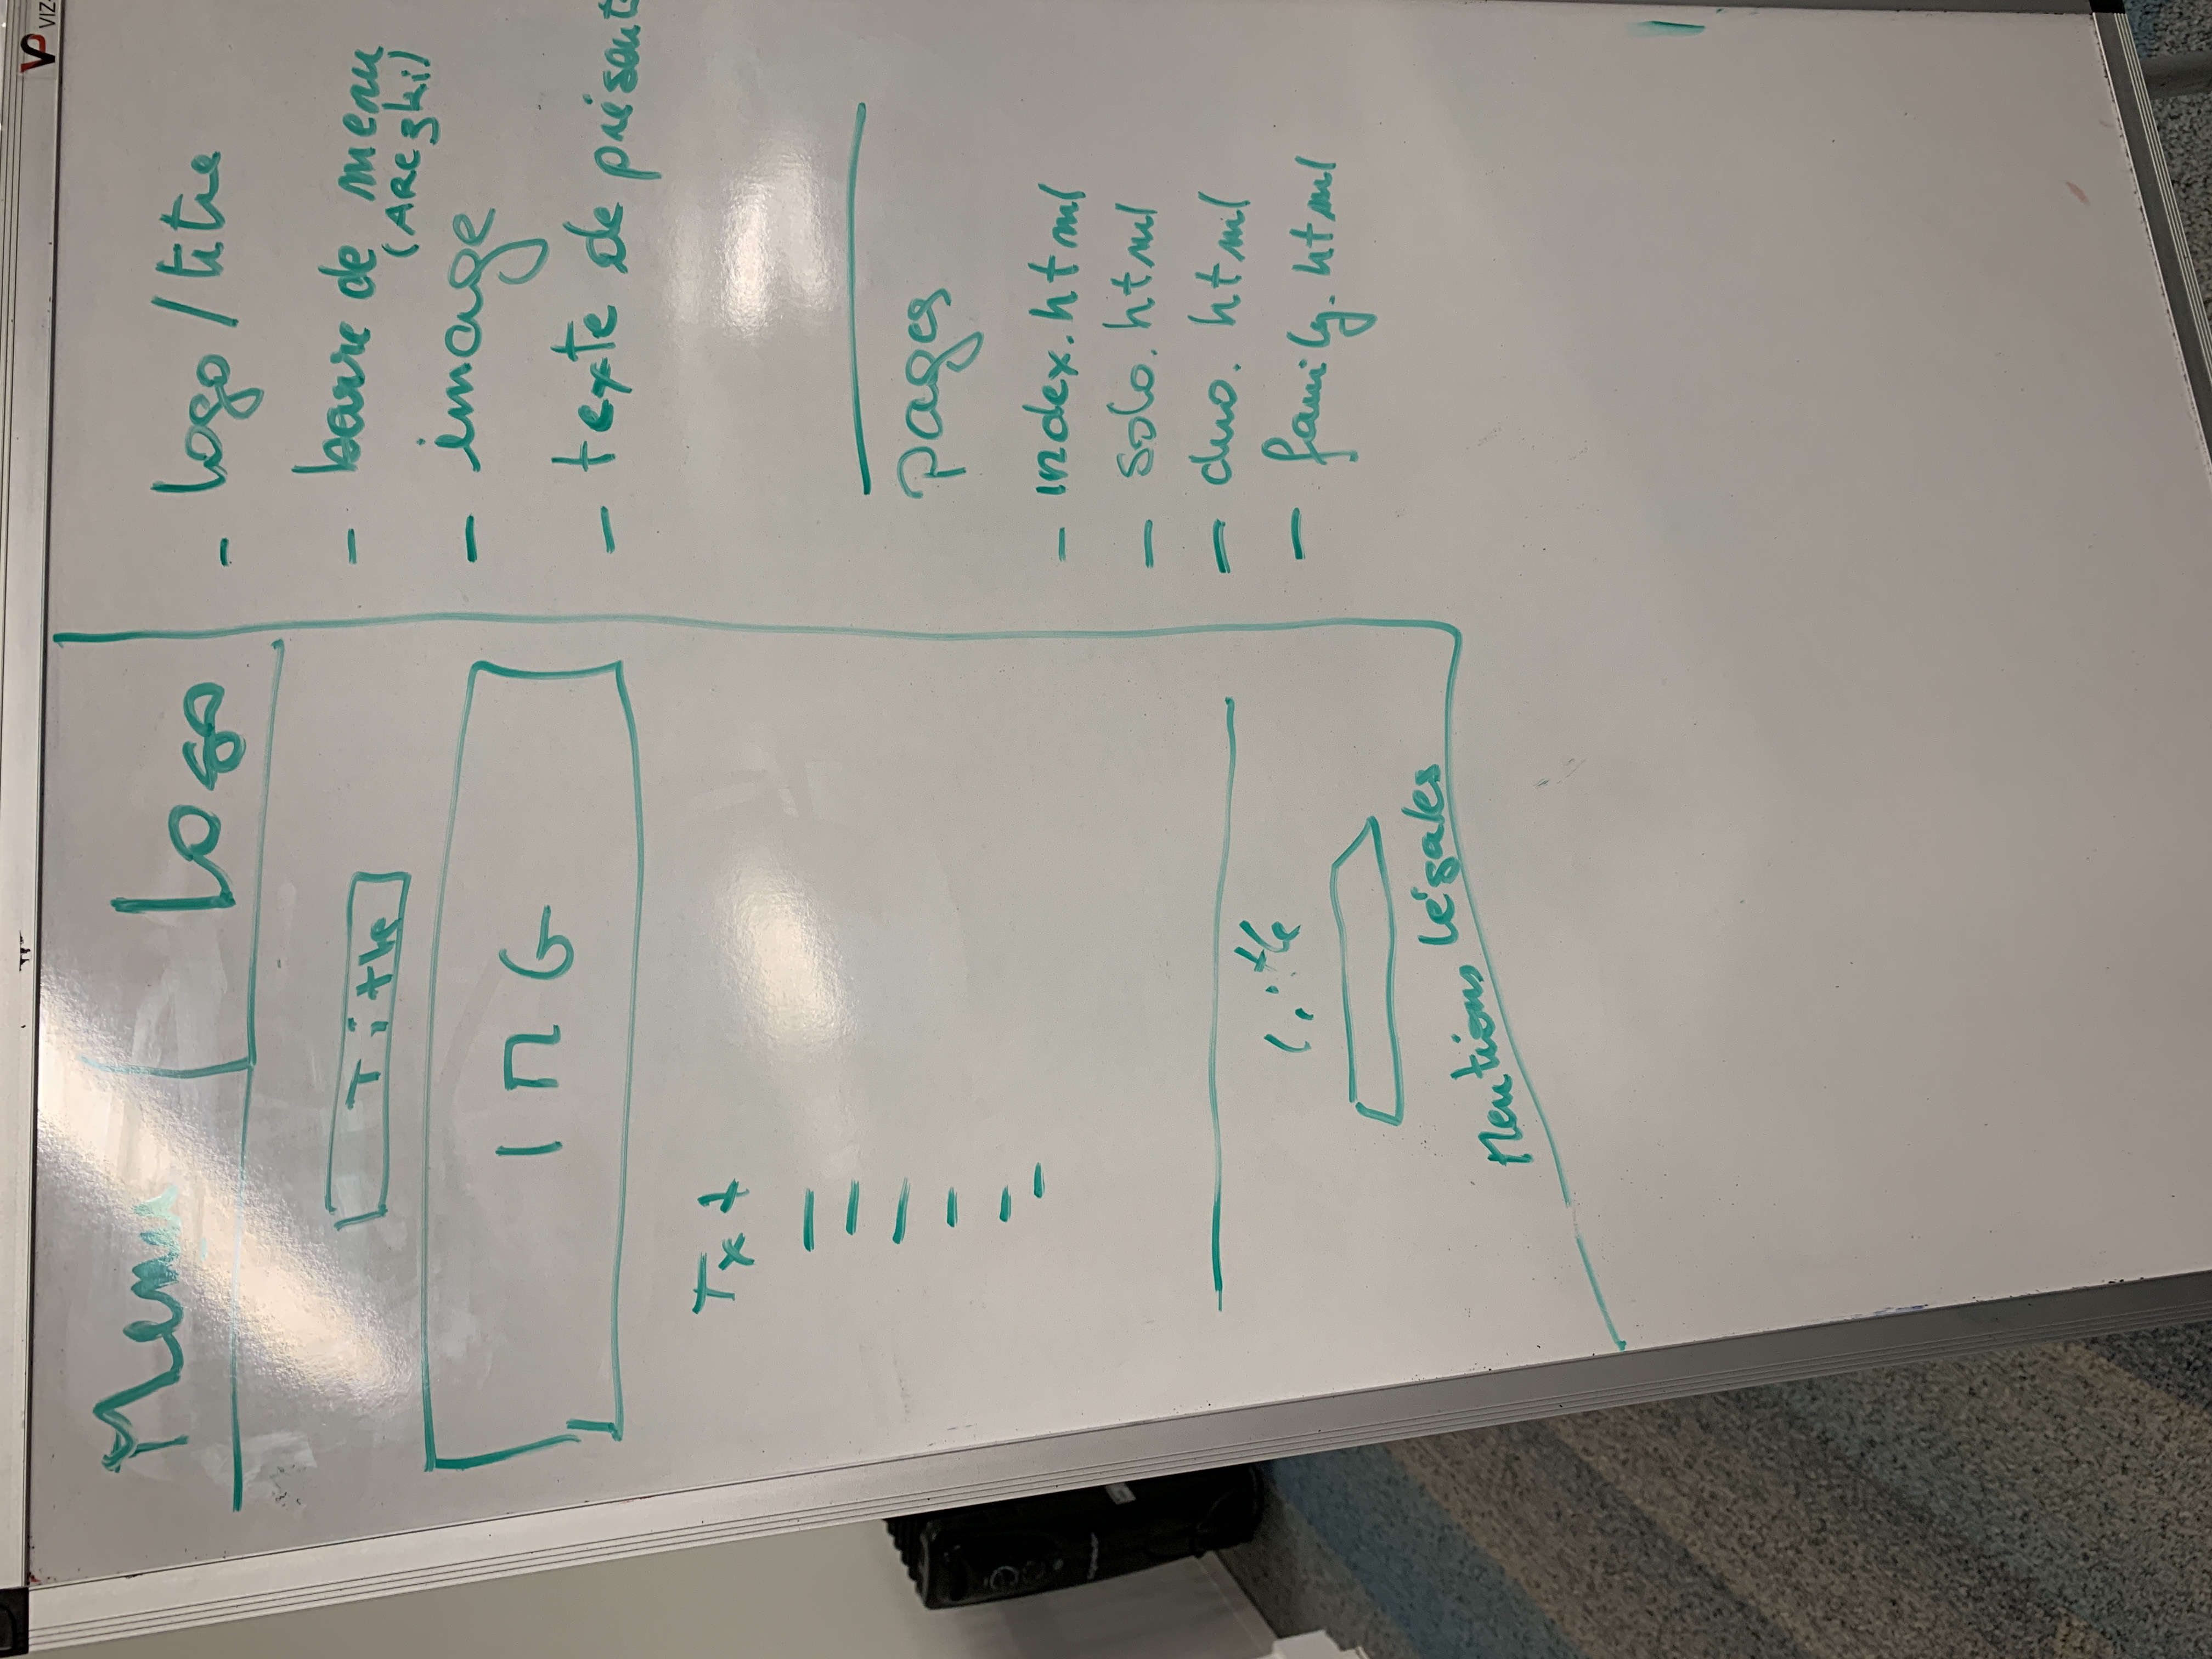 VIZ
Menu
Logo
Title
IMG
Txt
Mentions légales
- logo / titre
- barre de menu
(Arezki)
- image
- texte de présent
pages
- index.html
- solo.html
- duo.html
- family.html